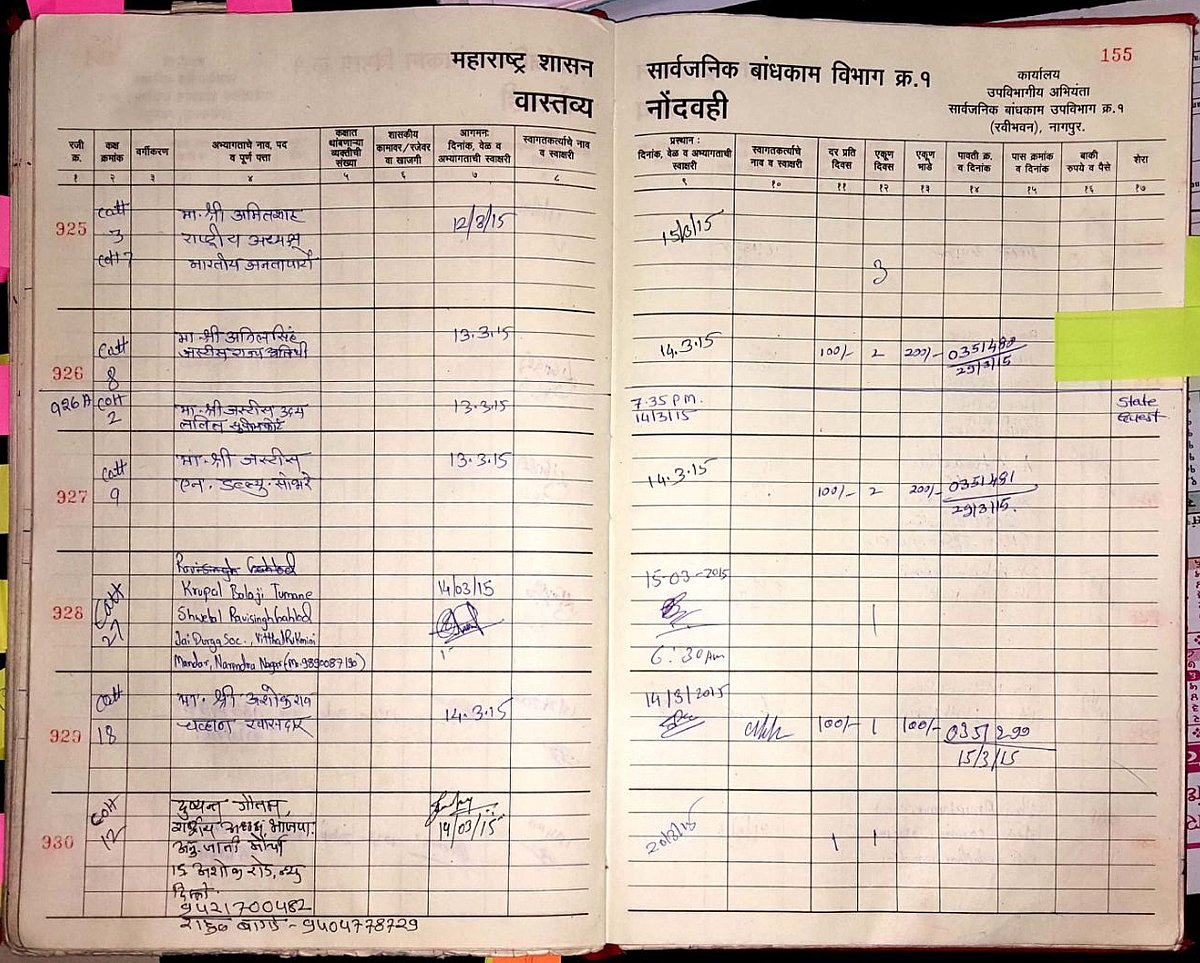 महाराष्ट्र शासन
वास्तव्य
सार्वजनिक बांधकाम विभाग क्र.१
नोंदवही
155
कार्यालय
उपविभागीय अभियंता
सार्वजनिक बांधकाम उपविभाग क्र.१
(रवीभवन), नागपुर.
रजी क्र.
कक्ष क्रमांक
वर्गीकरण
अभ्यागताचे नाव, पद व पूर्ण पत्ता
कक्षात थांबणाऱ्या व्यक्तीची संख्या
शासकीय कामावर/रजेवर वा खाजगी
आगमनः दिनांक, वेळ व अभ्यागताची स्वाक्षरी
स्वागतकर्त्याचे नाव व स्वाक्षरी
प्रस्थान : दिनांक, वेळ व अभ्यागताची स्वाक्षरी
स्वागतकर्त्याचे नाव व स्वाक्षरी
दर प्रति दिवस
एकूण दिवस
एकूण भाडे
पावती क्र. व दिनांक
पास क्रमांक व दिनांक
बाकी रुपये व पैसे
शेरा
१ २ ३ ४ ५ ६ ७ ८ ९ १० ११ १२ १३ १४ १५ १६ १७
925
3
मा. श्री अमितशाह
12/3/15
15/3/15
राष्ट्रीय अध्यक्ष
7
भारतीय जनतापार्टी
3
926
8
मा. श्री अनिलसिंह
13.3.15
14.3.15
100/- 2 200/- 0351480
29/3/15
926A
2
मा. श्री जस्टीस उदय
ललित सुप्रीमकोर्ट
13.3.15
7.35 P.M.
14/3/15
State
Guest
927
9
मा. श्री जस्टीस
13.3.15
14.3.15
एन. डब्ल्यु.
100/- 2 200/- 0351481
29/3/15.
928
27
Krupal Balaji Tumane
14/03/15
15-03-2015
Jai Durga Soc., Vitthal Rukmini
1
Mandar, Narendra Nagar
6:30 am
929
18
मा. श्री अशोकराव
चव्हाण खासदार
14.3.15
14/3/2015
100/- 1 100/- 0351299
15/3/15
930
12
दुष्यन्त गौतम,
राष्ट्रीय अध्यक्ष भाजपा.
14/03/15
20/3/15
अनु. जाती मोर्चा
1 1
15 अशोक रोड, न्यु
दिल्ली.
9421700482
9404778729